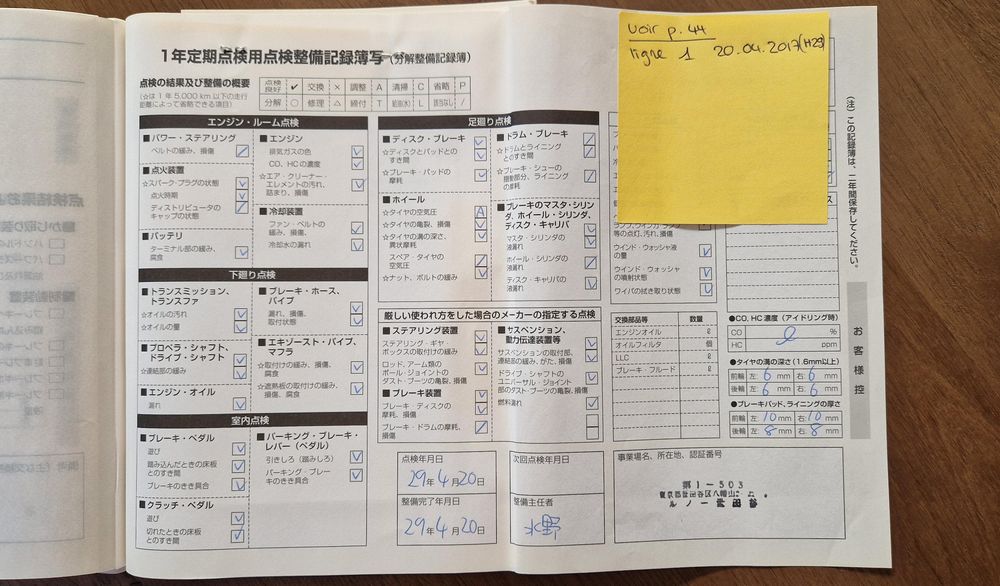 voir p. 44
ligne 1 20.04.2017(H29)
1年定期点検用点検整備記録簿写(分解整備記録簿)
点検の結果及び整備の概要
(☆は1年5,000km以下の走行
距離によって省略できる項目)
点検良好 ✓ 交換 × 調整 A 清掃 C 省略 P
分解 ○ 修理 △ 締付 T 給油(水) L 該当なし /
エンジン・ルーム点検
■パワー・ステアリング
ベルトの緩み、損傷
■点火装置
☆スパーク・プラグの状態
点火時期
ディストリビュータの
キャップの状態
■バッテリ
ターミナル部の緩み、
腐食
■エンジン
排気ガスの色
CO、HCの濃度
☆エア・クリーナー・
エレメントの汚れ、
詰まり、損傷
■冷却装置
ファン・ベルトの
緩み、損傷
冷却水の漏れ
下廻り点検
■トランスミッション、
トランスファ
☆オイルの汚れ
☆オイルの量
■プロペラ・シャフト、
ドライブ・シャフト
☆連結部の緩み
■エンジン・オイル
漏れ
■ブレーキ・ホース、
パイプ
漏れ、損傷、
取付状態
■エキゾースト・パイプ、
マフラ
☆取付けの緩み、損傷、
腐食
☆遮熱板の取付けの緩み、
損傷、腐食
室内点検
■ブレーキ・ペダル
遊び
踏み込んだときの床板
とのすき間
ブレーキのきき具合
■クラッチ・ペダル
遊び
切れたときの床板
とのすき間
■パーキング・ブレーキ・
レバー(ペダル)
引きしろ(踏みしろ)
パーキング・ブレー
キのきき具合
足廻り点検
■ディスク・ブレーキ
☆ディスクとパッドとの
すき間
☆ブレーキ・パッドの
摩耗
■ホイール
☆タイヤの空気圧 A
☆タイヤの亀裂、損傷
☆タイヤの溝の深さ、
異状摩耗
スペア・タイヤの
空気圧
☆ナット、ボルトの緩み
■ドラム・ブレーキ
☆ドラムとライニング
とのすき間
☆ブレーキ・シューの
摺動部分、ライニング
の摩耗
■ブレーキのマスタ・シリン
ダ、ホイール・シリンダ、
ディスク・キャリパ
マスタ・シリンダの
液漏れ
ホイール・シリンダの
液漏れ
ディスク・キャリパの
液漏れ
厳しい使われ方をした場合のメーカーの指定する点検
■ステアリング装置
ステアリング・ギヤ・
ボックスの取付けの緩み
ロッド、アーム類の
ボール・ジョイントの
ダスト・ブーツの亀裂、損傷
■ブレーキ装置
ブレーキ・ディスクの
摩耗、損傷
ブレーキ・ドラムの摩耗、
損傷
■サスペンション、
動力伝達装置等
サスペンションの取付部、
連結部の緩み、がた、損傷
ドライブ・シャフトの
ユニバーサル・ジョイント
部のダスト・ブーツの亀裂、損傷
燃料漏れ
等の点灯、汚れ、損傷
ウインド・ウォッシャ液
の量
ウインド・ウォッシャ
の噴射状態
ワイパの拭き取り状態
交換部品等 数量
エンジンオイル ℓ
オイルフィルタ 個
LLC ℓ
ブレーキ・フルード ℓ
●CO、HC濃度(アイドリング時)
CO %
HC ppm
●タイヤの溝の深さ(1.6mm以上)
前輪 左: 6 mm 右: 6 mm
後輪 左: 6 mm 右: 6 mm
●ブレーキパッド、ライニングの厚さ
前輪 左: 10 mm 右: 10 mm
後輪 左: 8 mm 右: 8 mm
点検年月日
29年4月20日
次回点検年月日
整備完了年月日
29年4月20日
整備主任者
水野
事業場名、所在地、認証番号
第1-503
ルノー世田谷
(注)この記録簿は、二年間保存してください。
お客様控